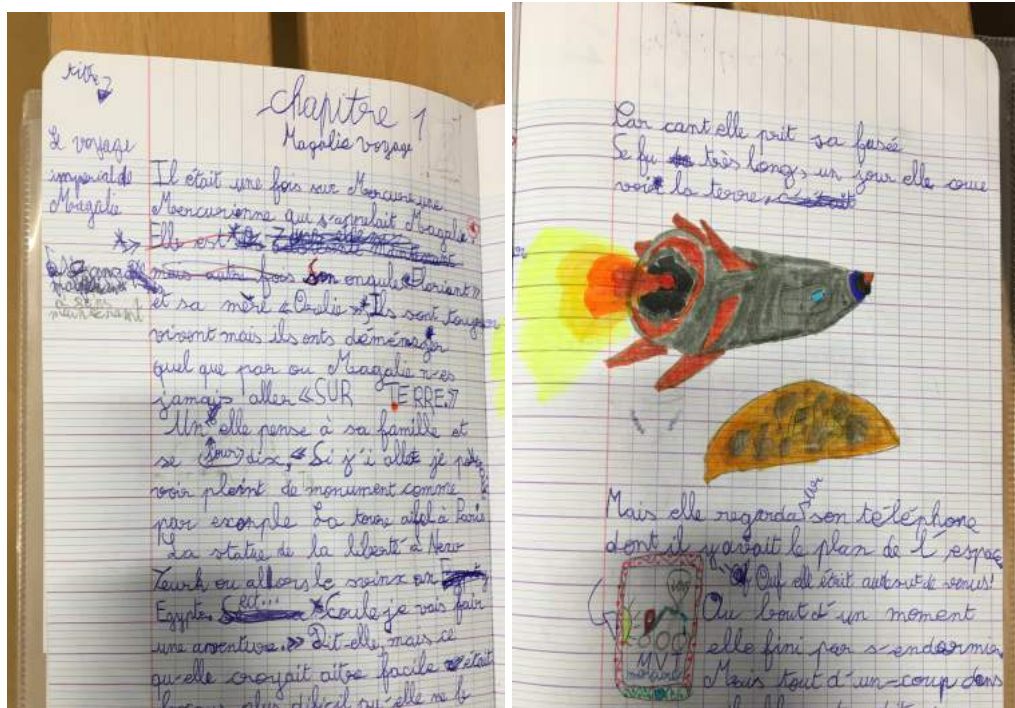 titre
Le voyage
imperial de
Magalie
chapitre 1
Magalie voyage
Il était une fois sur Mercure une
Mercurienne qui s'appelait Magalie.
Elle est
mais autre fois Son ongule « Floriant »
et sa mère « Orelie » Ils sont toujour
vivent mais ils onts déménager
quel que par ou Magalie n-es
jamais aller «SUR TERRE.»
Un jour elle pense à sa famille et
se dix, « Si j'i allet je
voir pleint de monument comme
par exemple La torre aifel à Paris
La statue de la liberté à New
Yeurk ou alhors le sxinx en
Egypte. ect... Coule je vais fair
une aventure. » Dit-elle, mais ce
qu-elle croyait aitre facile était
plus dificil qu'elle ne
Par cant elle prit sa fusée
Se fu très long, un jour elle cour
voir la terre,
Mais elle regarda sur son téléphone
dont il y avait le plan de l'espace
Ouf elle était autout de venus!
Au bout d'un moment
elle fini par s-endormir
Mais tout d'un-coup dans
MVI